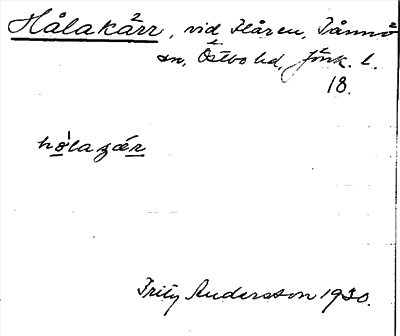 Hålakärr, vid Flåren, Tånnö
sn, Östbo hd, Jönk. l.
18.
hølagær
Fritz Andersson 1930.